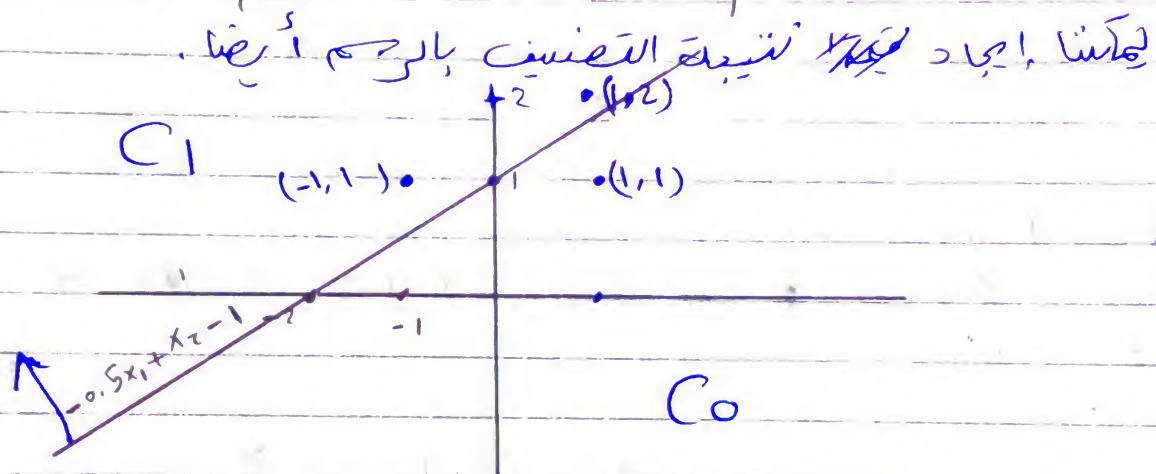 يمكننا إيجاد نتيجة التصنيف بالرسم أيضا.
2 (1,2)
C1 (-1,1) 1 (1,1)
-2 -1
-0.5x₁+x₂-1
C0